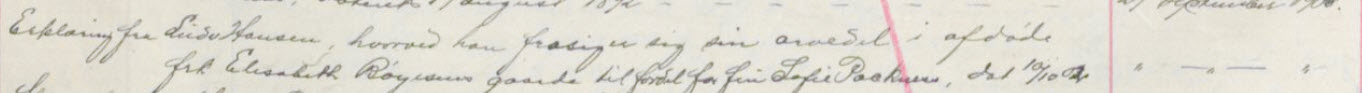 august 1892 - - - - - - september 190
Erklæring fra Ludv Hansen, hvorved han frasiger sig sin arvedel i afdøde
frk Elisabeth Bøyesens gaarde til fordel for fru Sofie Packness, dat 10/10 02 " — " — "